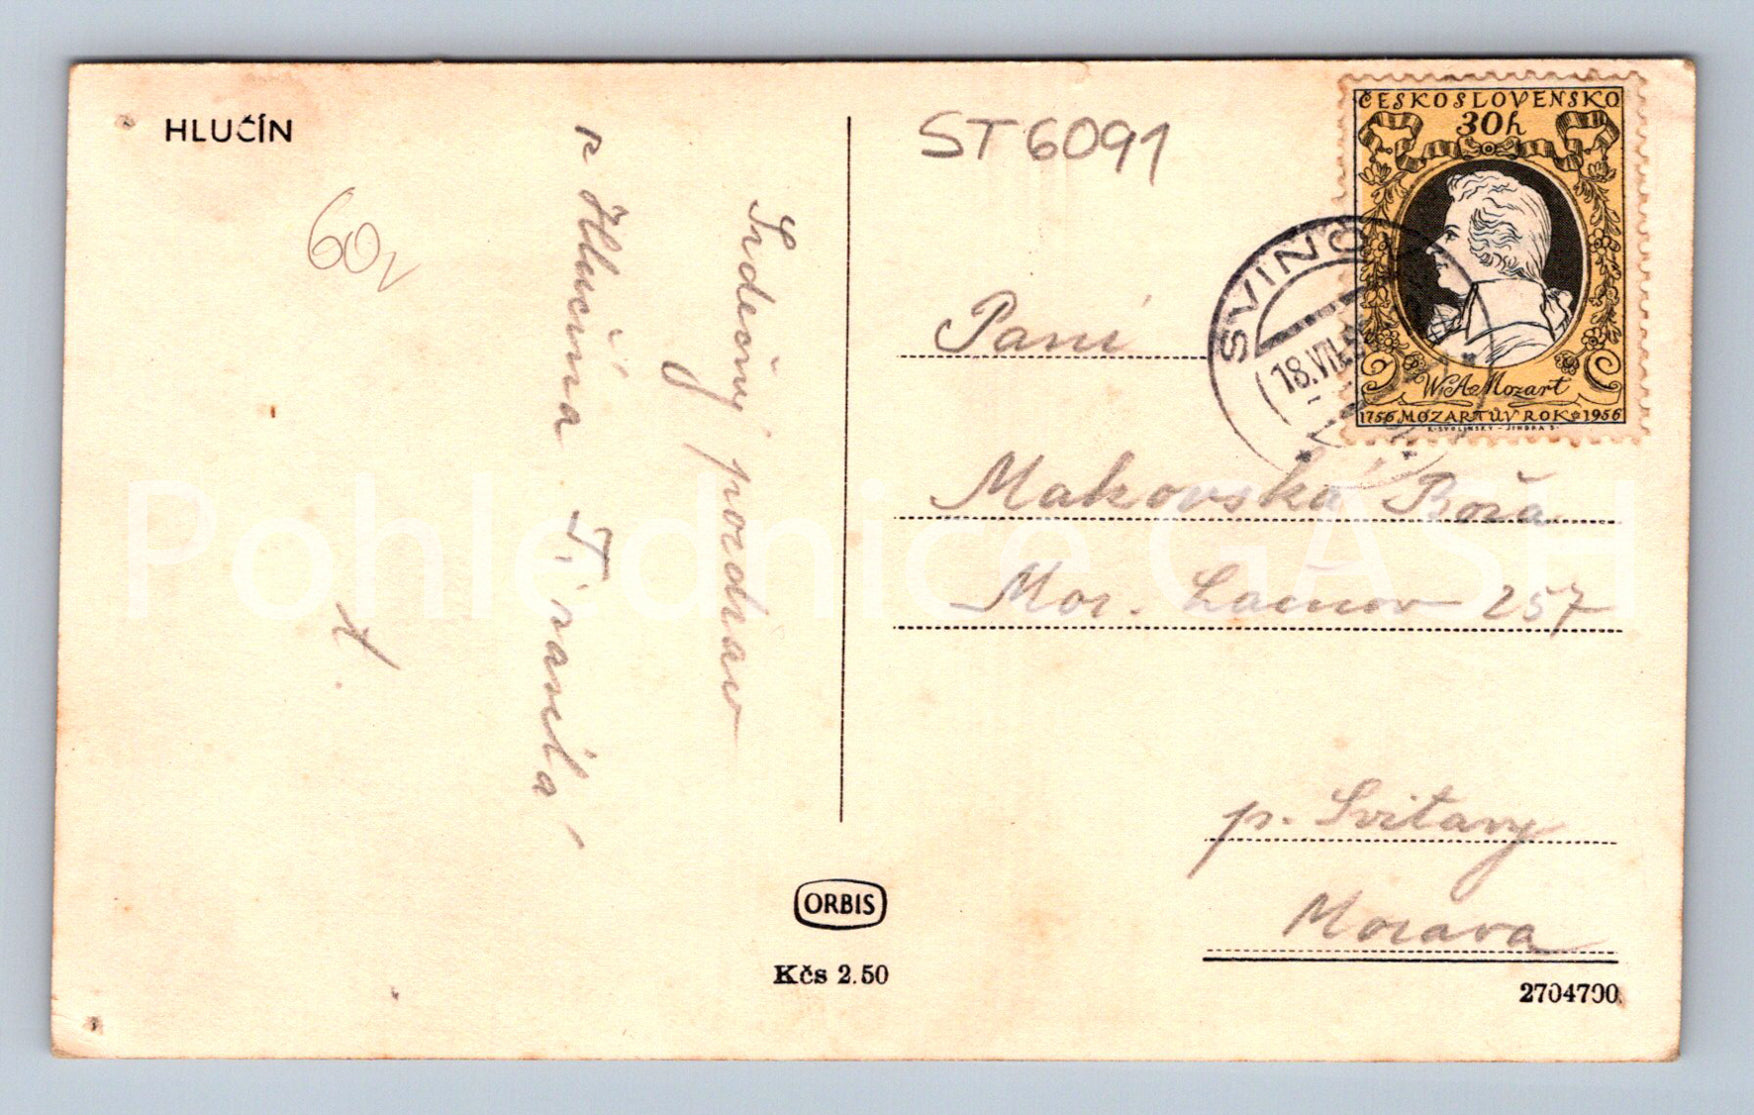 HLUČÍN
60,-
Srdečný pozdrav
z Hlučína
ST 6091
ČESKOSLOVENSKO
30h
W. A. Mozart
1756 MOZARTŮV ROK 1956
K. SVOLINSKÝ - JINDRA S.
SVINOV
18.VII.
Paní
Makovská Boža
Mor. Lačnov 257
p. Svitavy
Morava
ORBIS
Kčs 2.50
2704700
Pohlednice GASH